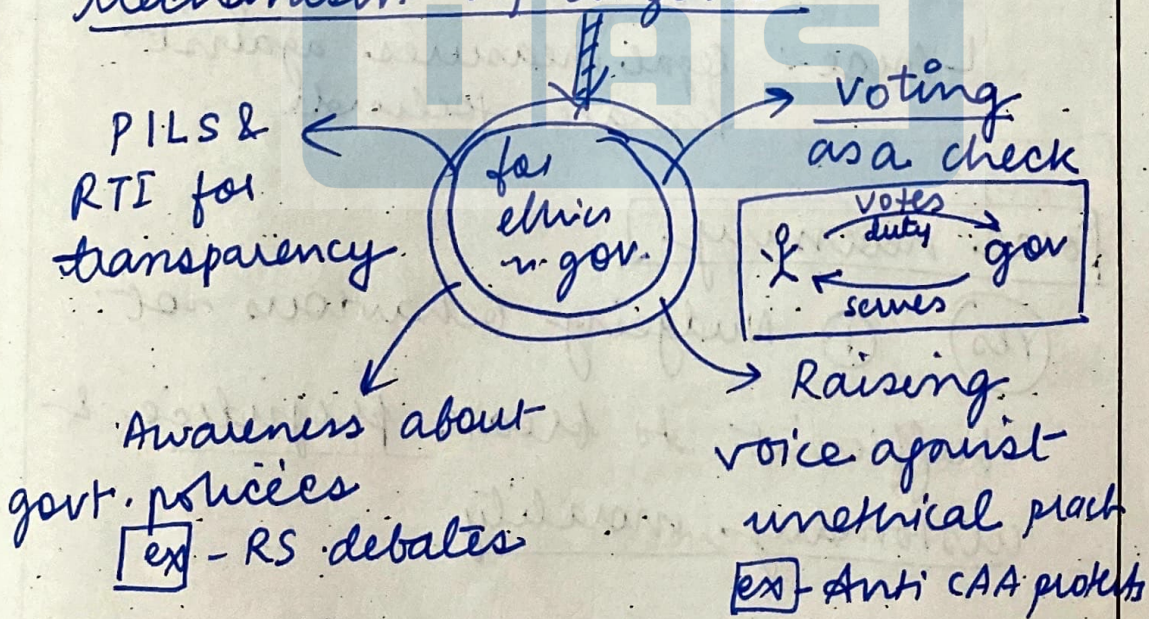 Mechanism
IAS
PILS &
RTI for
transparency
for
ethics
in gov.
Voting
as a check
votes
duty
gov
serves
Awareness about
govt. policies
ex - RS debates
Raising
voice against
unethical pract
ex - Anti CAA protests